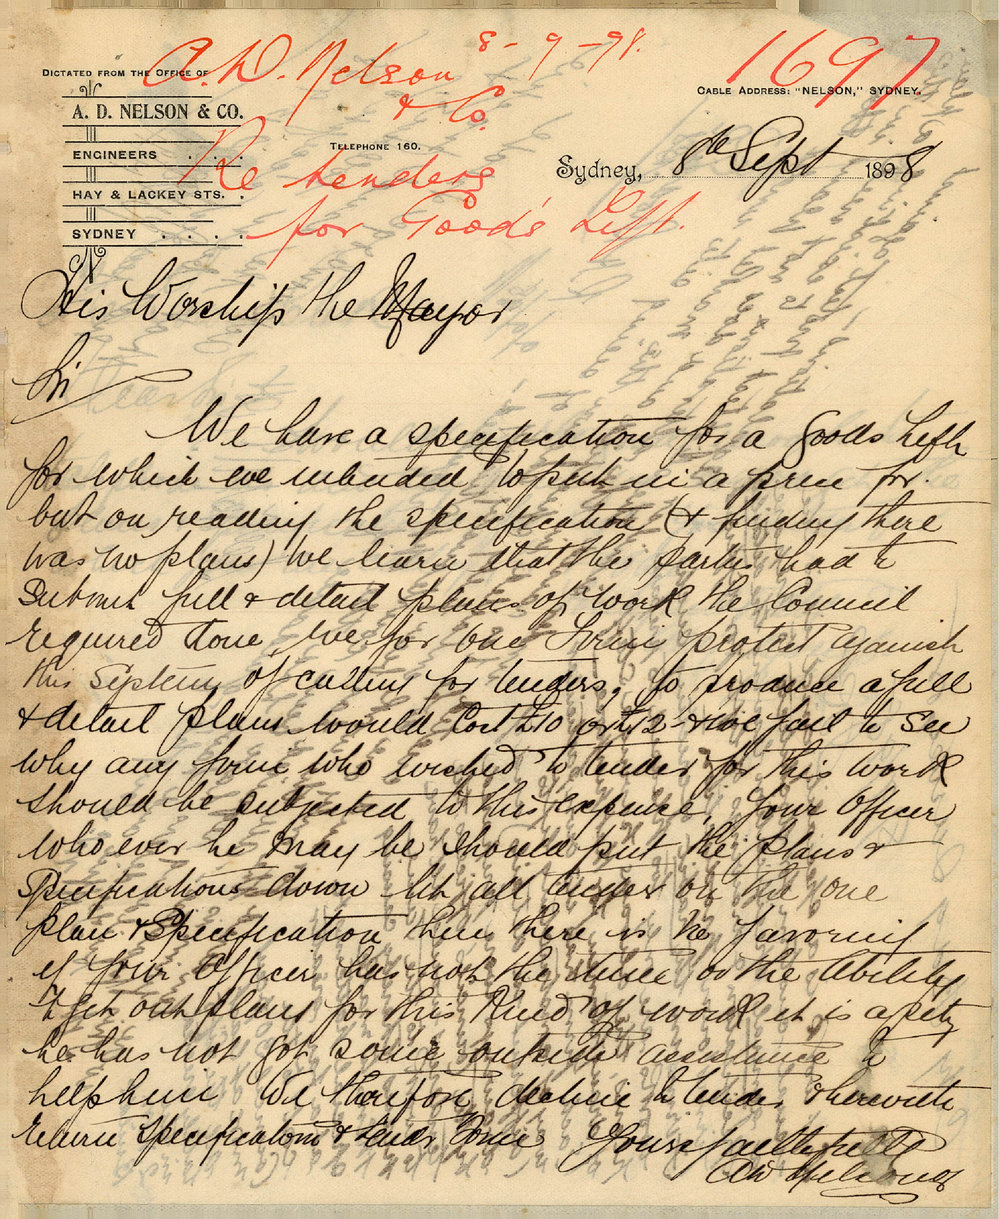 A. D. Nelson & Co. 8-9-98. 1697
Re tenders
for Goods Lift.
DICTATED FROM THE OFFICE OF
A. D. NELSON & CO.
ENGINEERS
HAY & LACKEY STS.
SYDNEY
TELEPHONE 160.
CABLE ADDRESS: "NELSON," SYDNEY.
Sydney, 8th Sept 1898
His Worship the Mayor
Sir
We have a specification for a Goods Lift
for which we intended to put in a price for.
but on reading the specification (& finding there
was no plans) we learn that the parties had to
Submit full & detail plans of work the Council
required done, we for one Firm protest against
this System of calling for tenders, to produce a full
& detail plans would Cost £10 or £12 & we fail to See
why any firm who wished to tender for this work
should be subjected to this expense, your Officer
who ever he may be should put the plans &
Specifications down let all tender on the one
plan & Specification then there is no favoring
if your Officer has not the time or the Ability
to get out plans for this kind of work it is a pity
he has not got some outside assistance to
help him We therefore decline to tender & herewith
return Specifications & tender
Yours faithfully
A D Nelson & Co